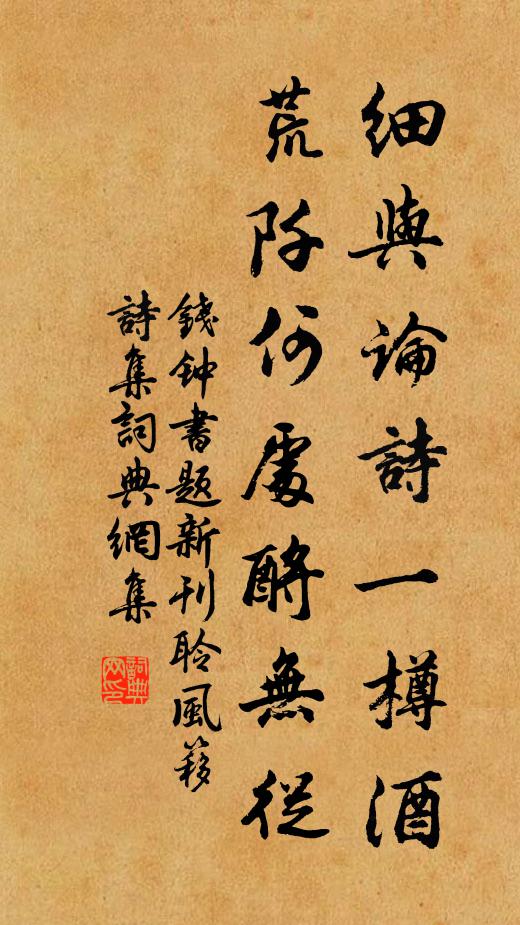 細與論詩一樽酒
荒阡何處酹無從
錢钟書題新刊聆風簃
詩集詞典網集
詞典网印